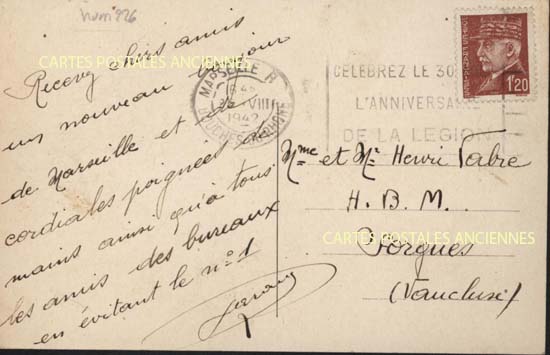 num 926
CARTES POSTALES ANCIENNES
Recevez chers amis
un nouveau bonjour
de Marseille et de
cordiales poignées de
mains ainsi qu'à tous
les amis des bureaux
en évitant le n° 1
MARSEILLE
VIII
1942
BOUCHES-DU-RHONE
CELEBREZ LE 30
L'ANNIVERSAIRE
DE LA LEGION
1f20
Mme et Mr Henri Fabre
H. B. M.
Sorgues
CARTES POSTALES ANCIENNES
(Vaucluse)